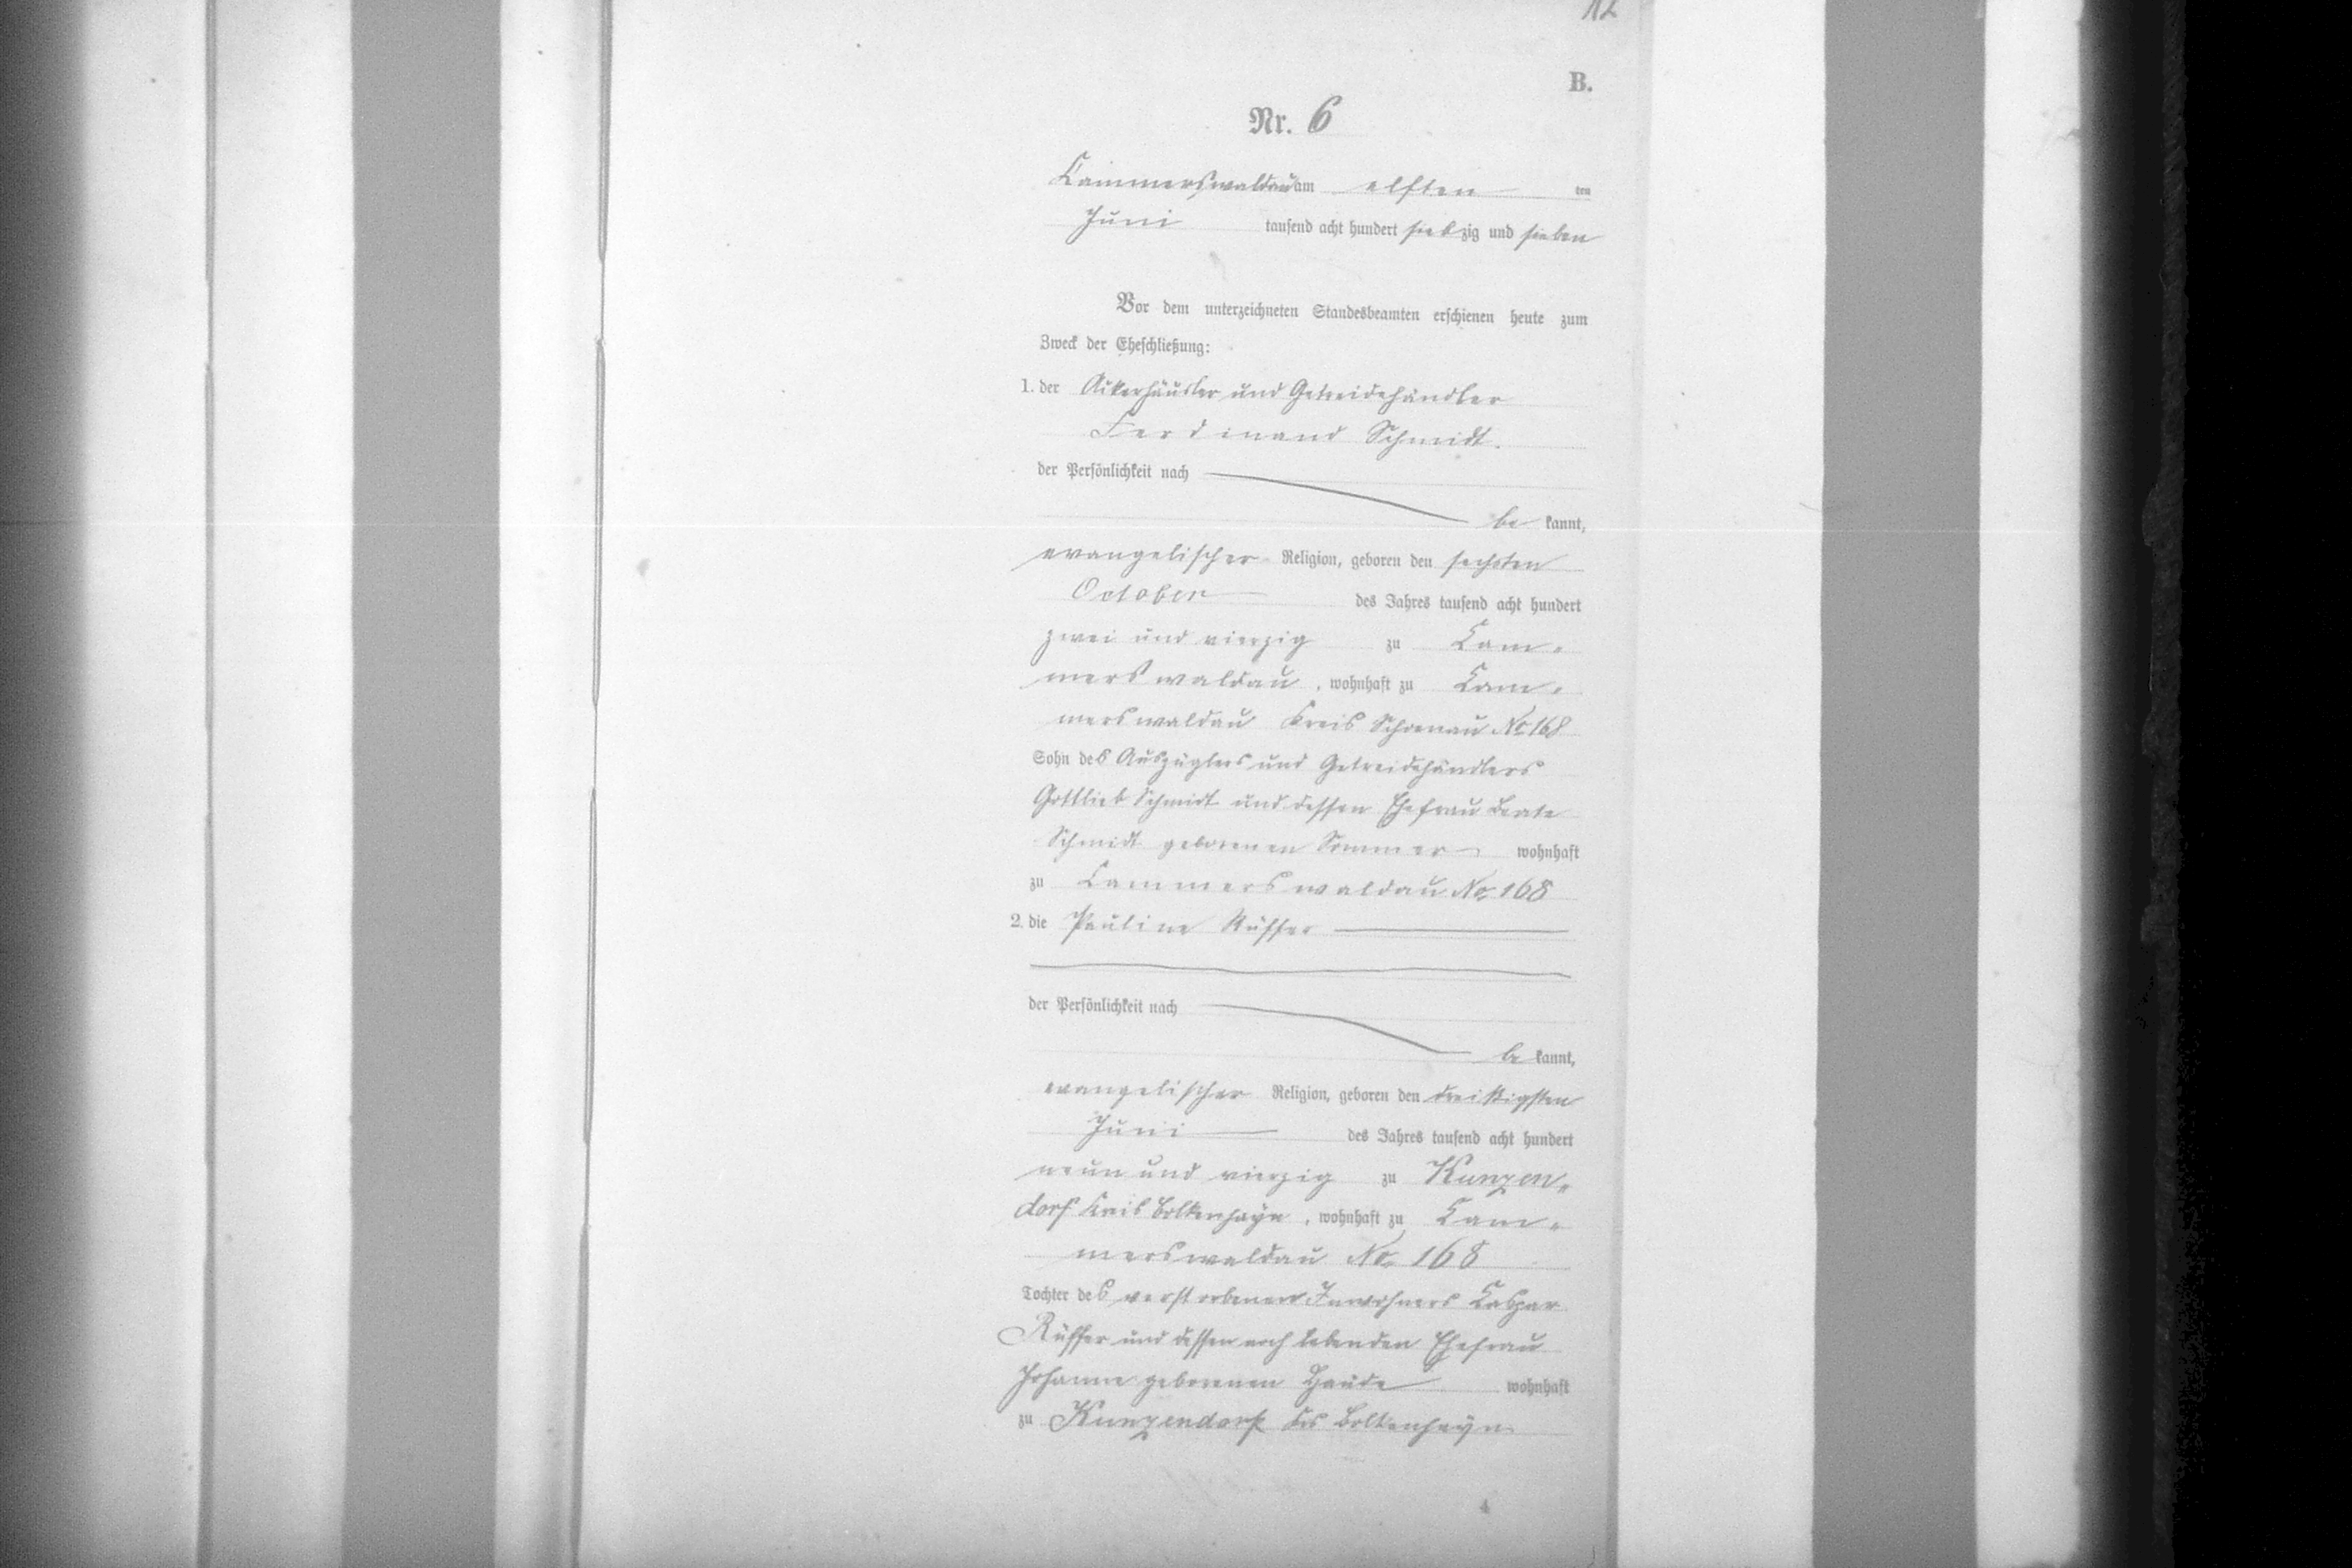 12
B.
Nr. 6
Cammerswaldau am elften ten
Juni tausend acht hundert siebzig und sieben
Vor dem unterzeichneten Standesbeamten erschienen heute zum
Zweck der Eheschließung:
1. der Ackerhäusler und Getreidehändler
Ferdinand Schmidt.
der Persönlichkeit nach
be kannt,
evangelischer Religion, geboren den sechsten
October des Jahres tausend acht hundert
zwei und vierzig zu Cam-
merswaldau, wohnhaft zu Cam-
merswaldau Kreis Schoenau No 168
Sohn des Auszüglers und Getreidehändlers
Gottlieb Schmidt und dessen Ehefrau Beate
Schmidt geborenen Sommer wohnhaft
zu Cammerswaldau No 168
2. die Pauline Rüffer
der Persönlichkeit nach
be kannt,
evangelischer Religion, geboren den dreißigsten
Juni des Jahres tausend acht hundert
neun und vierzig zu Kunzen-
dorf Kreis Bolkenhayn, wohnhaft zu Cam-
merswaldau No 168
Tochter des verstorbenen Inwohners Caspar
Rüffer und dessen noch lebenden Ehefrau
Johanne geborenen Haude wohnhaft
zu Kunzendorf Krs Bolkenhayn
4